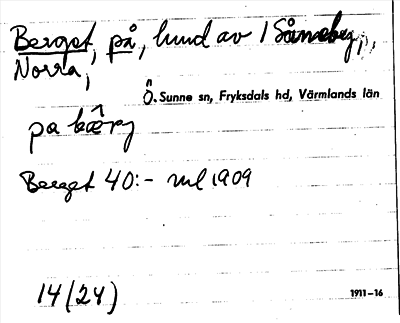 Berget, på, hund av 1 Såneby,
Norra,
Ö. Sunne sn, Fryksdals hd, Värmlands län
pa bærj
Berget 40:- ml 1909
14(24)
1911-16